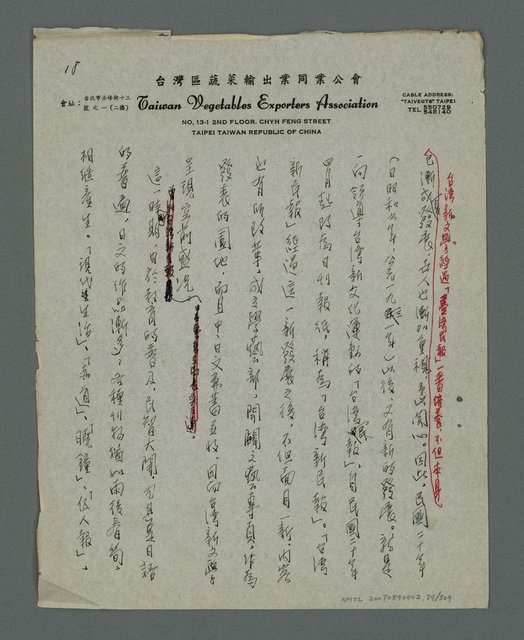 18
台灣區蔬菜輸出業同業公會
會址：台北市赤峰街十三號之一（二樓）
Taiwan Vegetables Exporters Association
CABLE ADDRESS:
"TAIVEGTS" TAIPEI
TEL 550729
546140
NO, 13-1 2ND FLOOR. CHYH FENG STREET
TAIPEI TAIWAN REPUBLIC OF CHINA
台灣新文學經過「臺灣民報」一番培養，不但本身
已漸漸發展，世人也漸加重視與關心。因此，民國二十年
（日昭和六年，公元一九三一年）以後，又有新的發展。就是
一向領導台灣新文化運動的「台灣民報」，自民國二十年
四月起改為日刊報紙，稱為「台灣新民報」。「台灣
新民報」經過這一新發展之後，不但面目一新，內容
也有所改革，成立學藝部，開闢文藝專頁，作為
發表的園地，而且中、日文兼蓄並收，因而台灣新文學
呈現空前盛況
這一時期，由於教育的普及，民智大開，尤其是日語
的普遍，日文的作品漸多，各種刊物猶如雨後春筍，
相繼產生。「現代生活」、「赤道」、「曉鐘」、「伍人報」、
NMTL 20070590002, 79/309